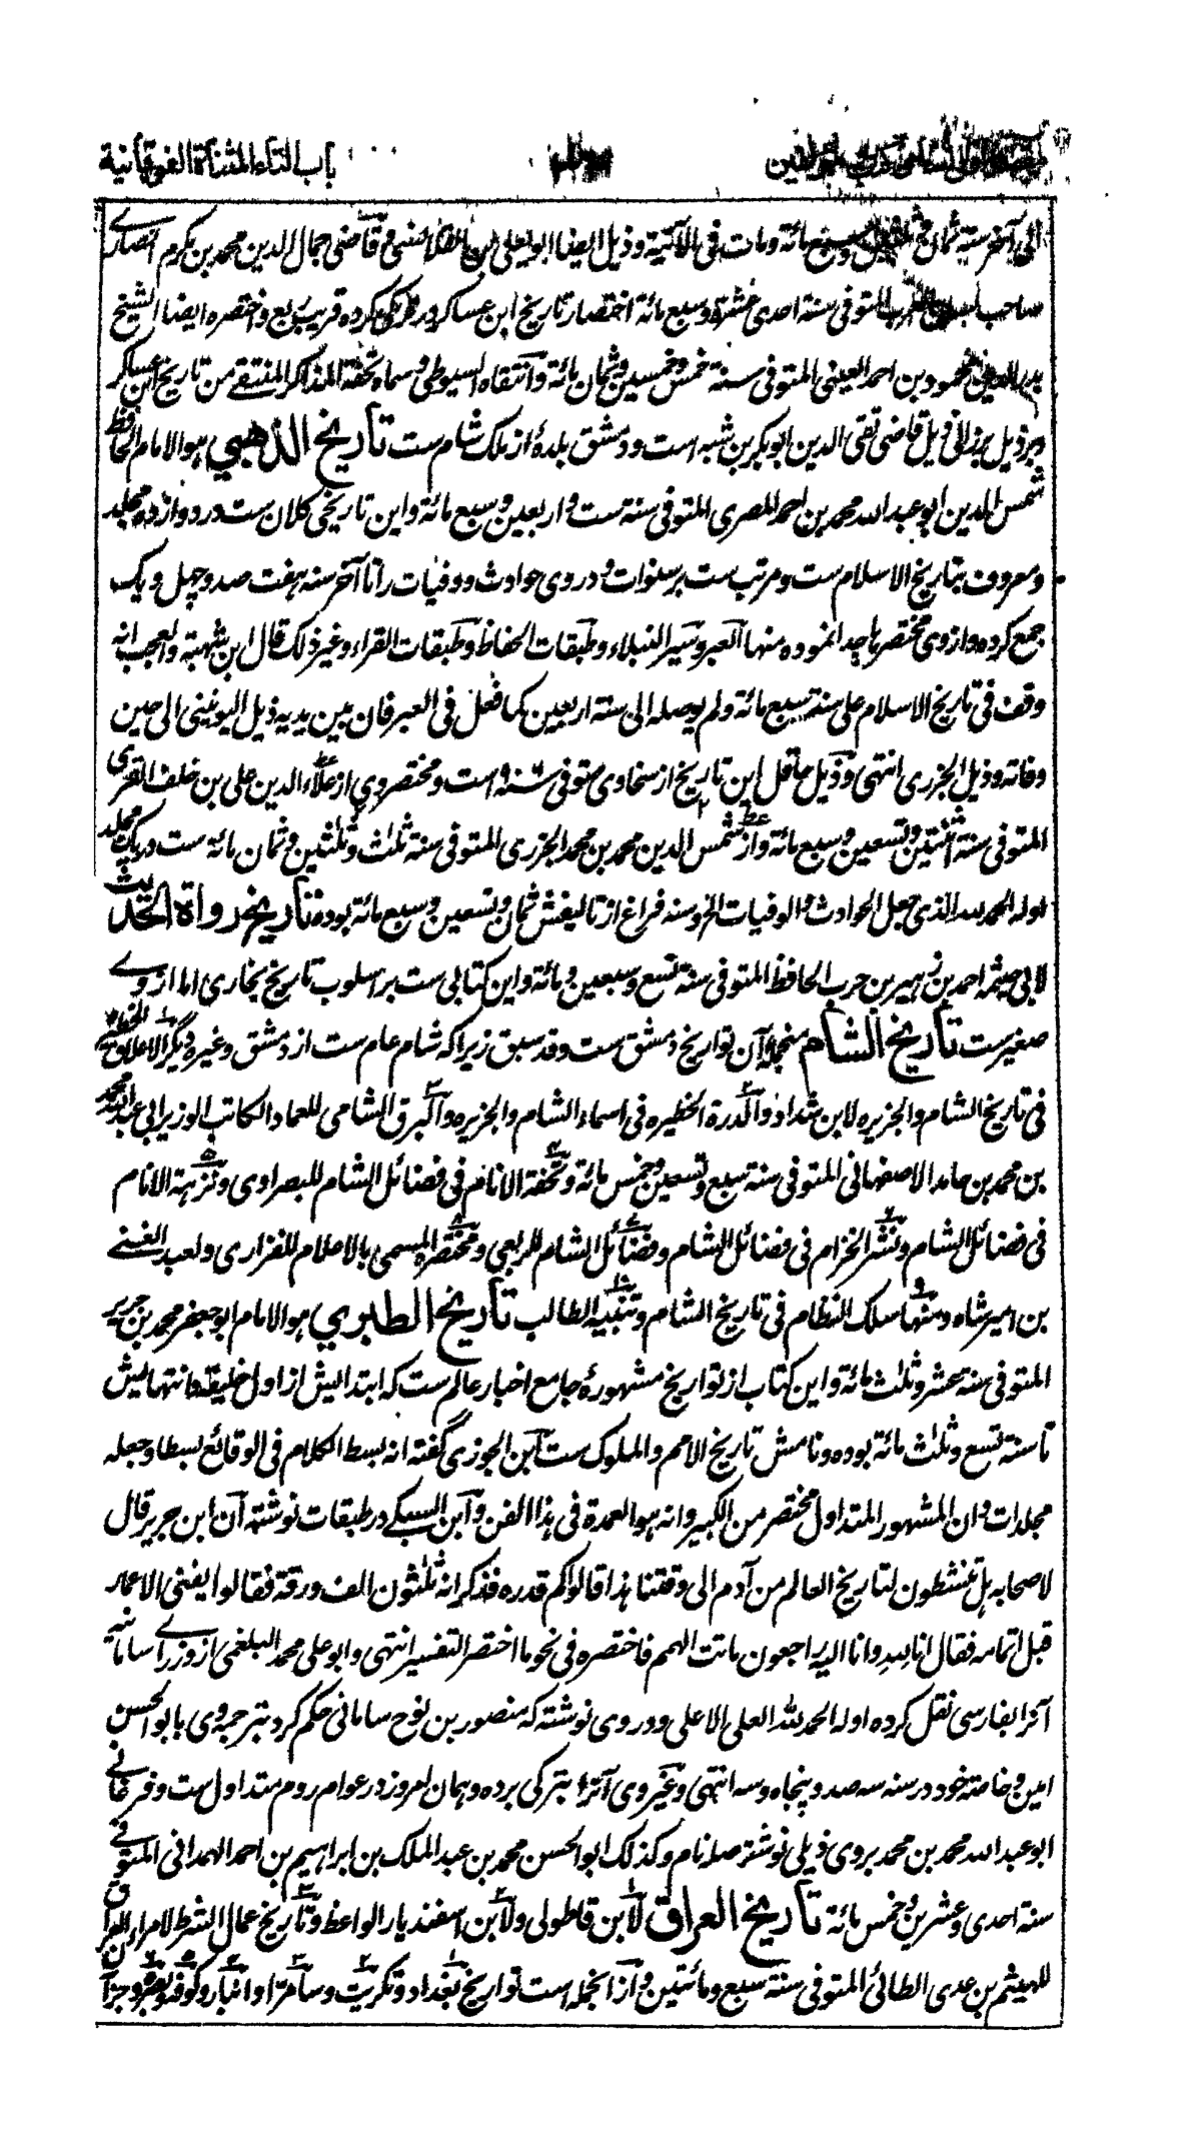 باب التاء المثناة الفوقانية
الی آخر سنة ثمان و مائة ومات فی الآتیة وذیل ایضا ابو یعلی بن القلانسی وقاضی جمال الدین محمد بن مکرم انصاری
صاحب لسان العرب المتوفی سنة احدی عشرة وسبع مائة اختصار تاریخ ابن عساکر در کرده قریب ربع واختصره ایضا الشیخ
بدر الدین محمود بن احمد العینی المتوفی سنة خمس وخمسین وثمان مائة وانتقاه السیوطی وسماه تحفة المذاکر المنتقی من تاریخ ابن عساکر
وبر ذیل برزالی ذیل قاضی تقی الدین ابوبکر بن شبه است ودمشق بلدهٔ از ملک شام ست تاریخ الذهبی هو الامام الحافظ
شمس الدین ابو عبد الله محمد بن احمد المصری المتوفی سنة ست واربعین وسبع مائة واین تاریخی کلان ست در دوازده مجلد
ومعروف بتاریخ الاسلام ست ومرتب ست بر سنوات ودر وی حوادث ووفیات را تا آخر سنه هفت صد وچهل ویک
جمع کرده وازوی مختصرها جدا نموده منها العبر وسیر النبلاء وطبقات الحفاظ وطبقات القراء وغیر ذلک قال ابن شهبة والعجب انه
وقف فی تاریخ الاسلام علی سنة سبع مائة ولم یوصله الی سنة اربعین کما فعل فی العبر فان بین یدیه ذیل الیونینی الی حین
وفاته وذیل الجزری انتهی وذیل حافل این تاریخ از سخاوی متوفی سنة ۹۰۲ است ومختصر وی از علاء الدین علی بن خلف الغزی
المتوفی سنة اثنتین وتسعین وسبع مائة واز شمس الدین محمد بن محمد الجزری المتوفی سنة ثلث وثلثین وثمان مائة ست در یک مجلد
اوله الحمد لله الذی جعل الحوادث والوفیات الخ وسنه فراغ از تالیفش ثمان وتسعین وسبع مائة بوده تاریخ رواة الحدیث
لابی خیثمه احمد بن زهیر بن حرب الحافظ المتوفی سنة تسع وسبعین ومائة واین کتابی ست بر اسلوب تاریخ بخاری اما ازوے
صغیر ست تاریخ الشام منجملهٔ آن تواریخ دمشق ست وقد سبق زیراکه شام عام ست از دمشق وغیره دیگر الاعلاق الخطیره
فی تاریخ الشام والجزیره لابن شداد والدرة الخطیره فی اسماء الشام والجزیره والبرق الشامی للعماد الکاتب الوزیر ابی عبد الله محمد
بن محمد بن حامد الاصفهانی المتوفی سنة سبع وتسعین وخمس مائة وتحفة الانام فی فضائل الشام للبصراوی ونزهة الانام
فی فضائل الشام ونشر الخزام فی فضائل الشام وفضائل الشام للربعی ومختصره المسمی بالاعلام للفزاری ولعبد الغنی
بن امیر شاه ومنها سلک النظام فی تاریخ الشام وتنبیه الطالب تاریخ الطبری هو الامام ابو جعفر محمد بن جریر
المتوفی سنة عشر وثلث مائة واین کتاب از تواریخ مشهورهٔ جامع اخبار عالم ست که ابتدایش از اول خلیقه وانتهایش
تا سنه تسع وثلث مائة بوده ونامش تاریخ الامم والملوک ست ابن الجوزی گفته انه بسط الکلام فی الوقائع بسطا وجعله
مجلدات وان المشهور المتداول مختصر من الکبیر وانه هو العمدة فی هذا الفن وابن السبکی در طبقات نوشته آن ابن جریر قال
لاصحابه هل تنشطون لتاریخ العالم من آدم الی وقتنا هذا قالوا کم قدره فذکر انه ثلثون الف ورقة فقالوا یفنی الاعمار
قبل اتمامه فقال انا لله وانا الیه راجعون ماتت الهمم فاختصره فی نحو ما اختصر التفسیر انتهی وابو علی محمد البلغمی از وزراے سامانیه
آنرا بفارسی نقل کرده اوله الحمد لله العلی الاعلی ودر وی نوشته که منصور بن نوح سامانی حکم کرد بترجمه وی بابو الحسن
امین وخاصه خود در سنه سه صد وپنجاه وسه انتهی وغیر وی آنرا بترکی برده وهمان امروز در عوام روم متداول ست وفرغانی
ابو عبد الله محمد بن محمد بر وی ذیلی نوشته صله نام وکذلک ابو الحسن محمد بن عبد الملک بن ابراهیم بن احمد الهمدانی المتوفی
سنة احدی وعشرین وخمس مائة تاریخ العراق لابن قاطولی ولابن اسفندیار الواعظ وتاریخ عمال الشرط لامراء العراق
للهیثم بن عدی الطائی المتوفی سنة سبع ومائتین وازانجمله است تواریخ بغداد وتکریت وسامرا وانبار وکوفه وبصره